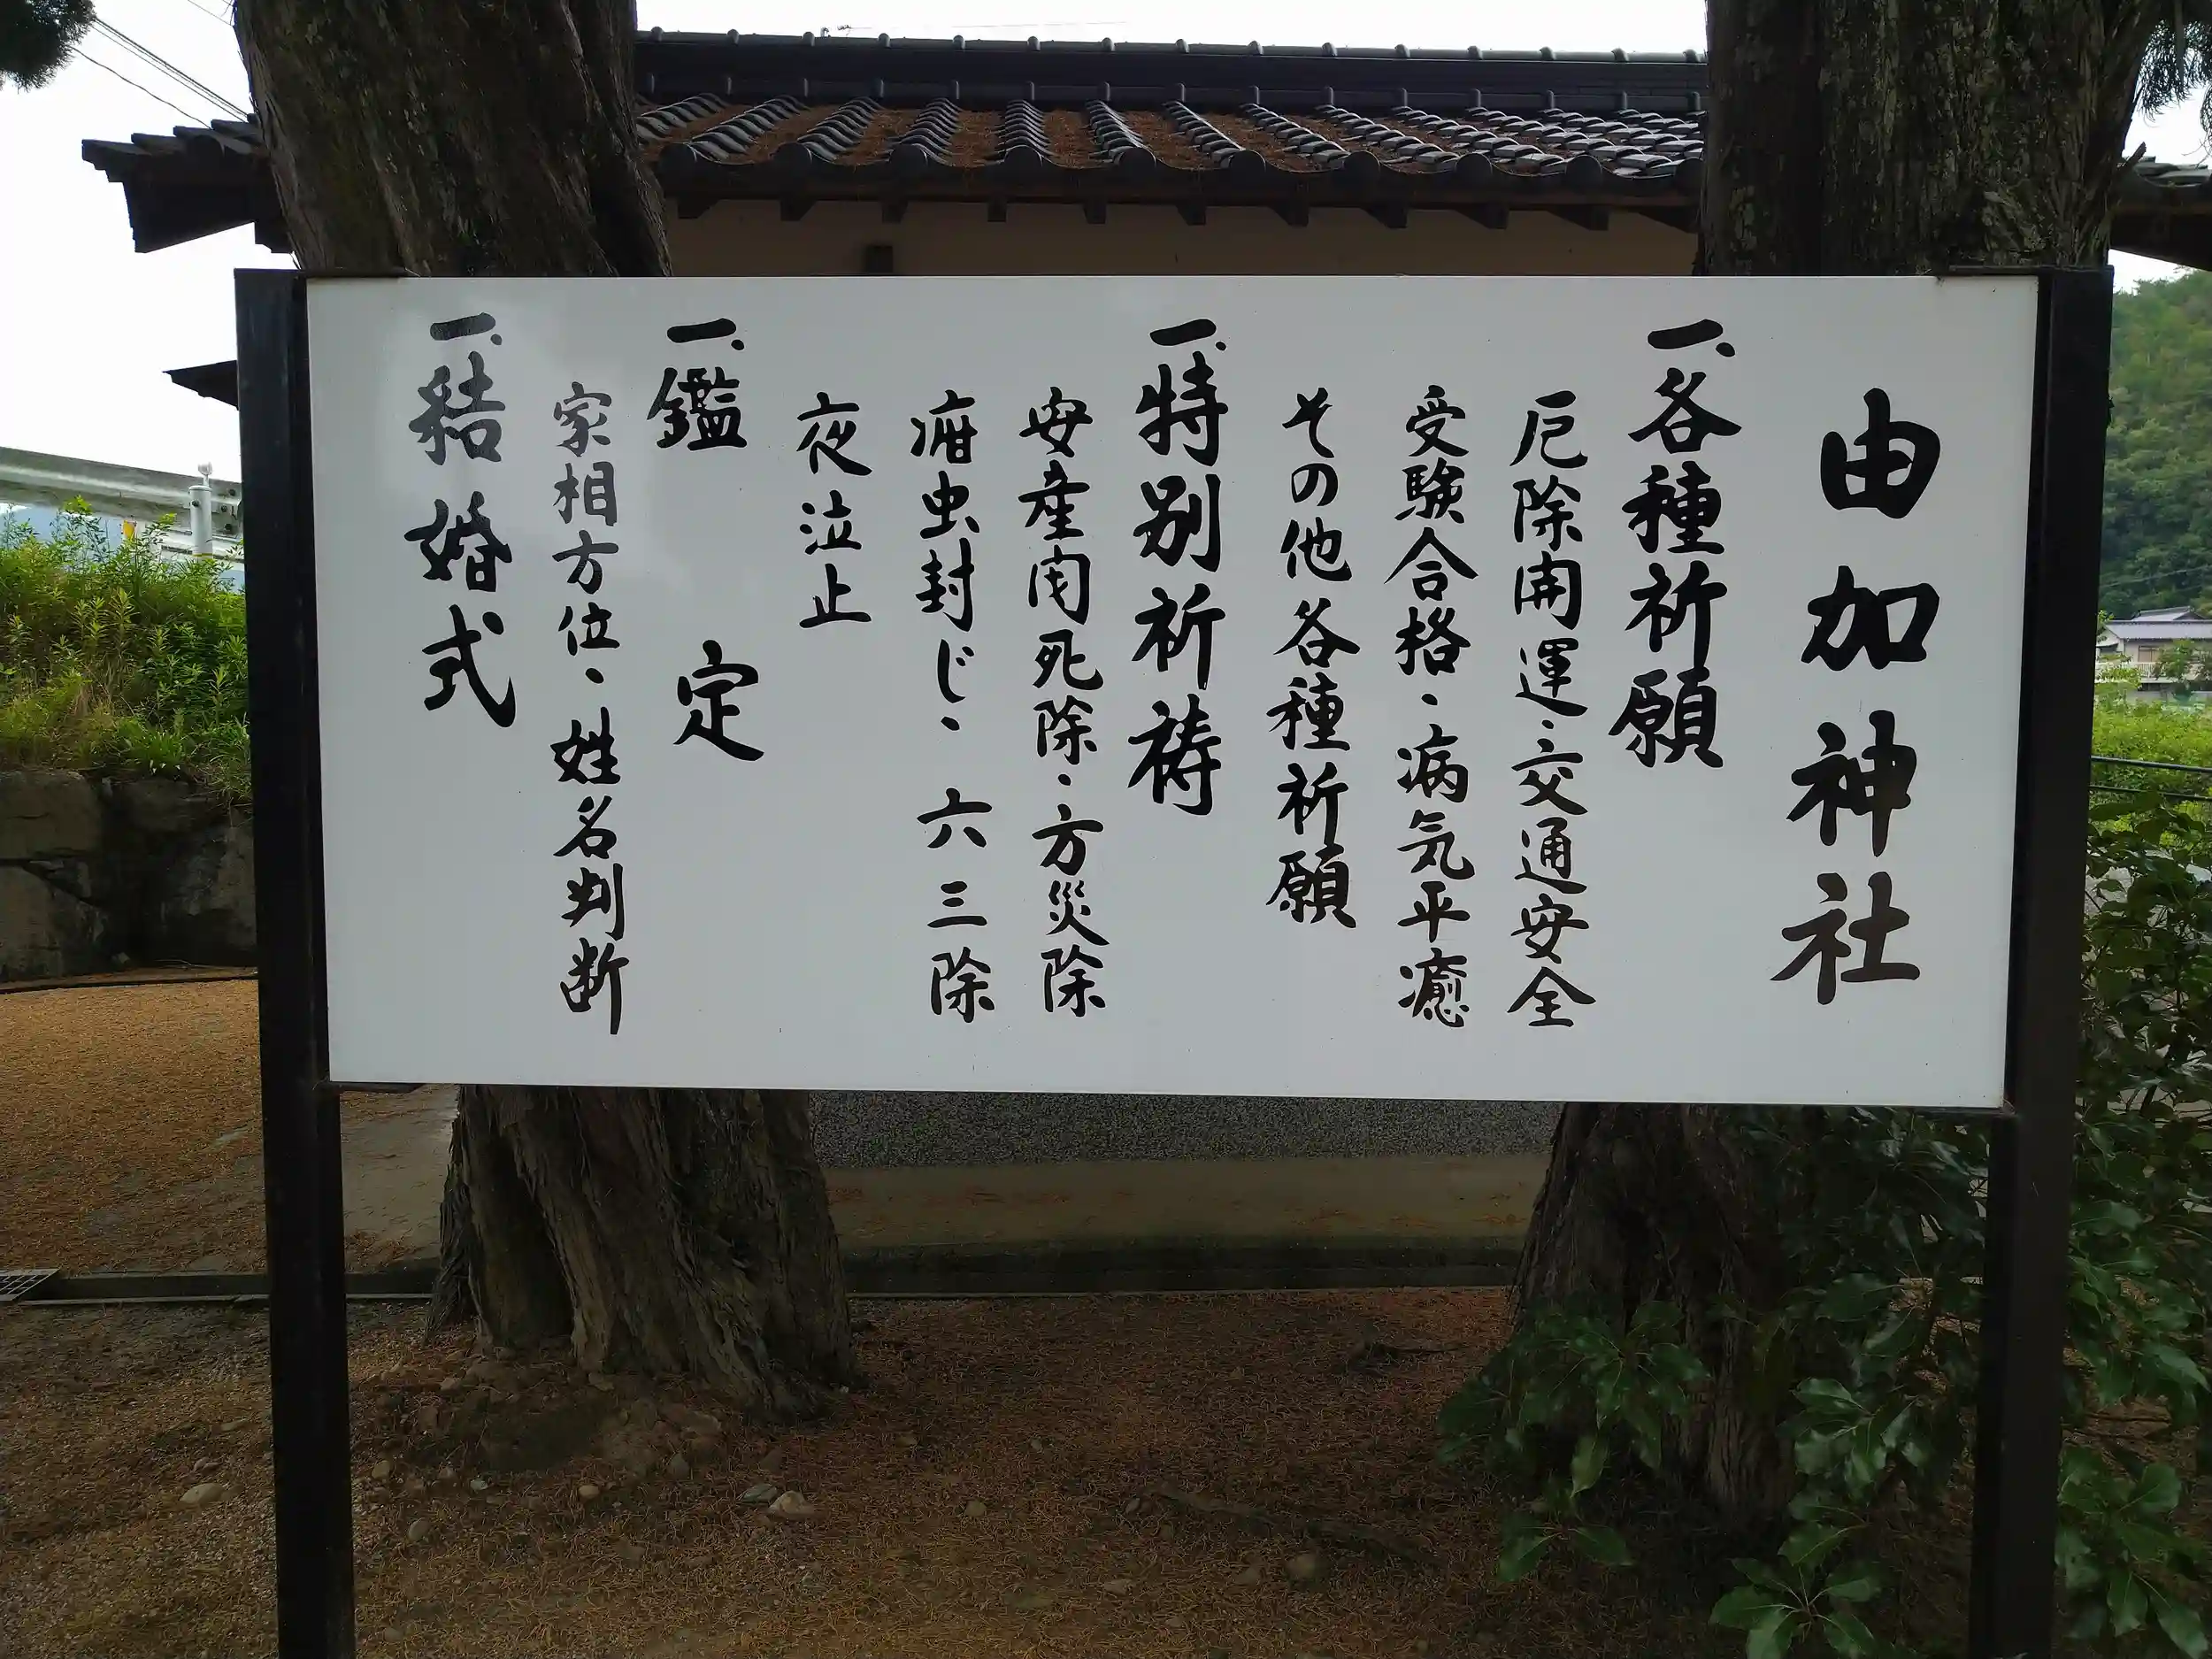 由加神社
一、各種祈願
厄除開運・交通安全
受験合格・病気平癒
その他各種祈願
一、特別祈祷
安産関死除・方災除
疳虫封じ・六三除
夜泣止
一、鑑定
家相方位・姓名判断
一、結婚式